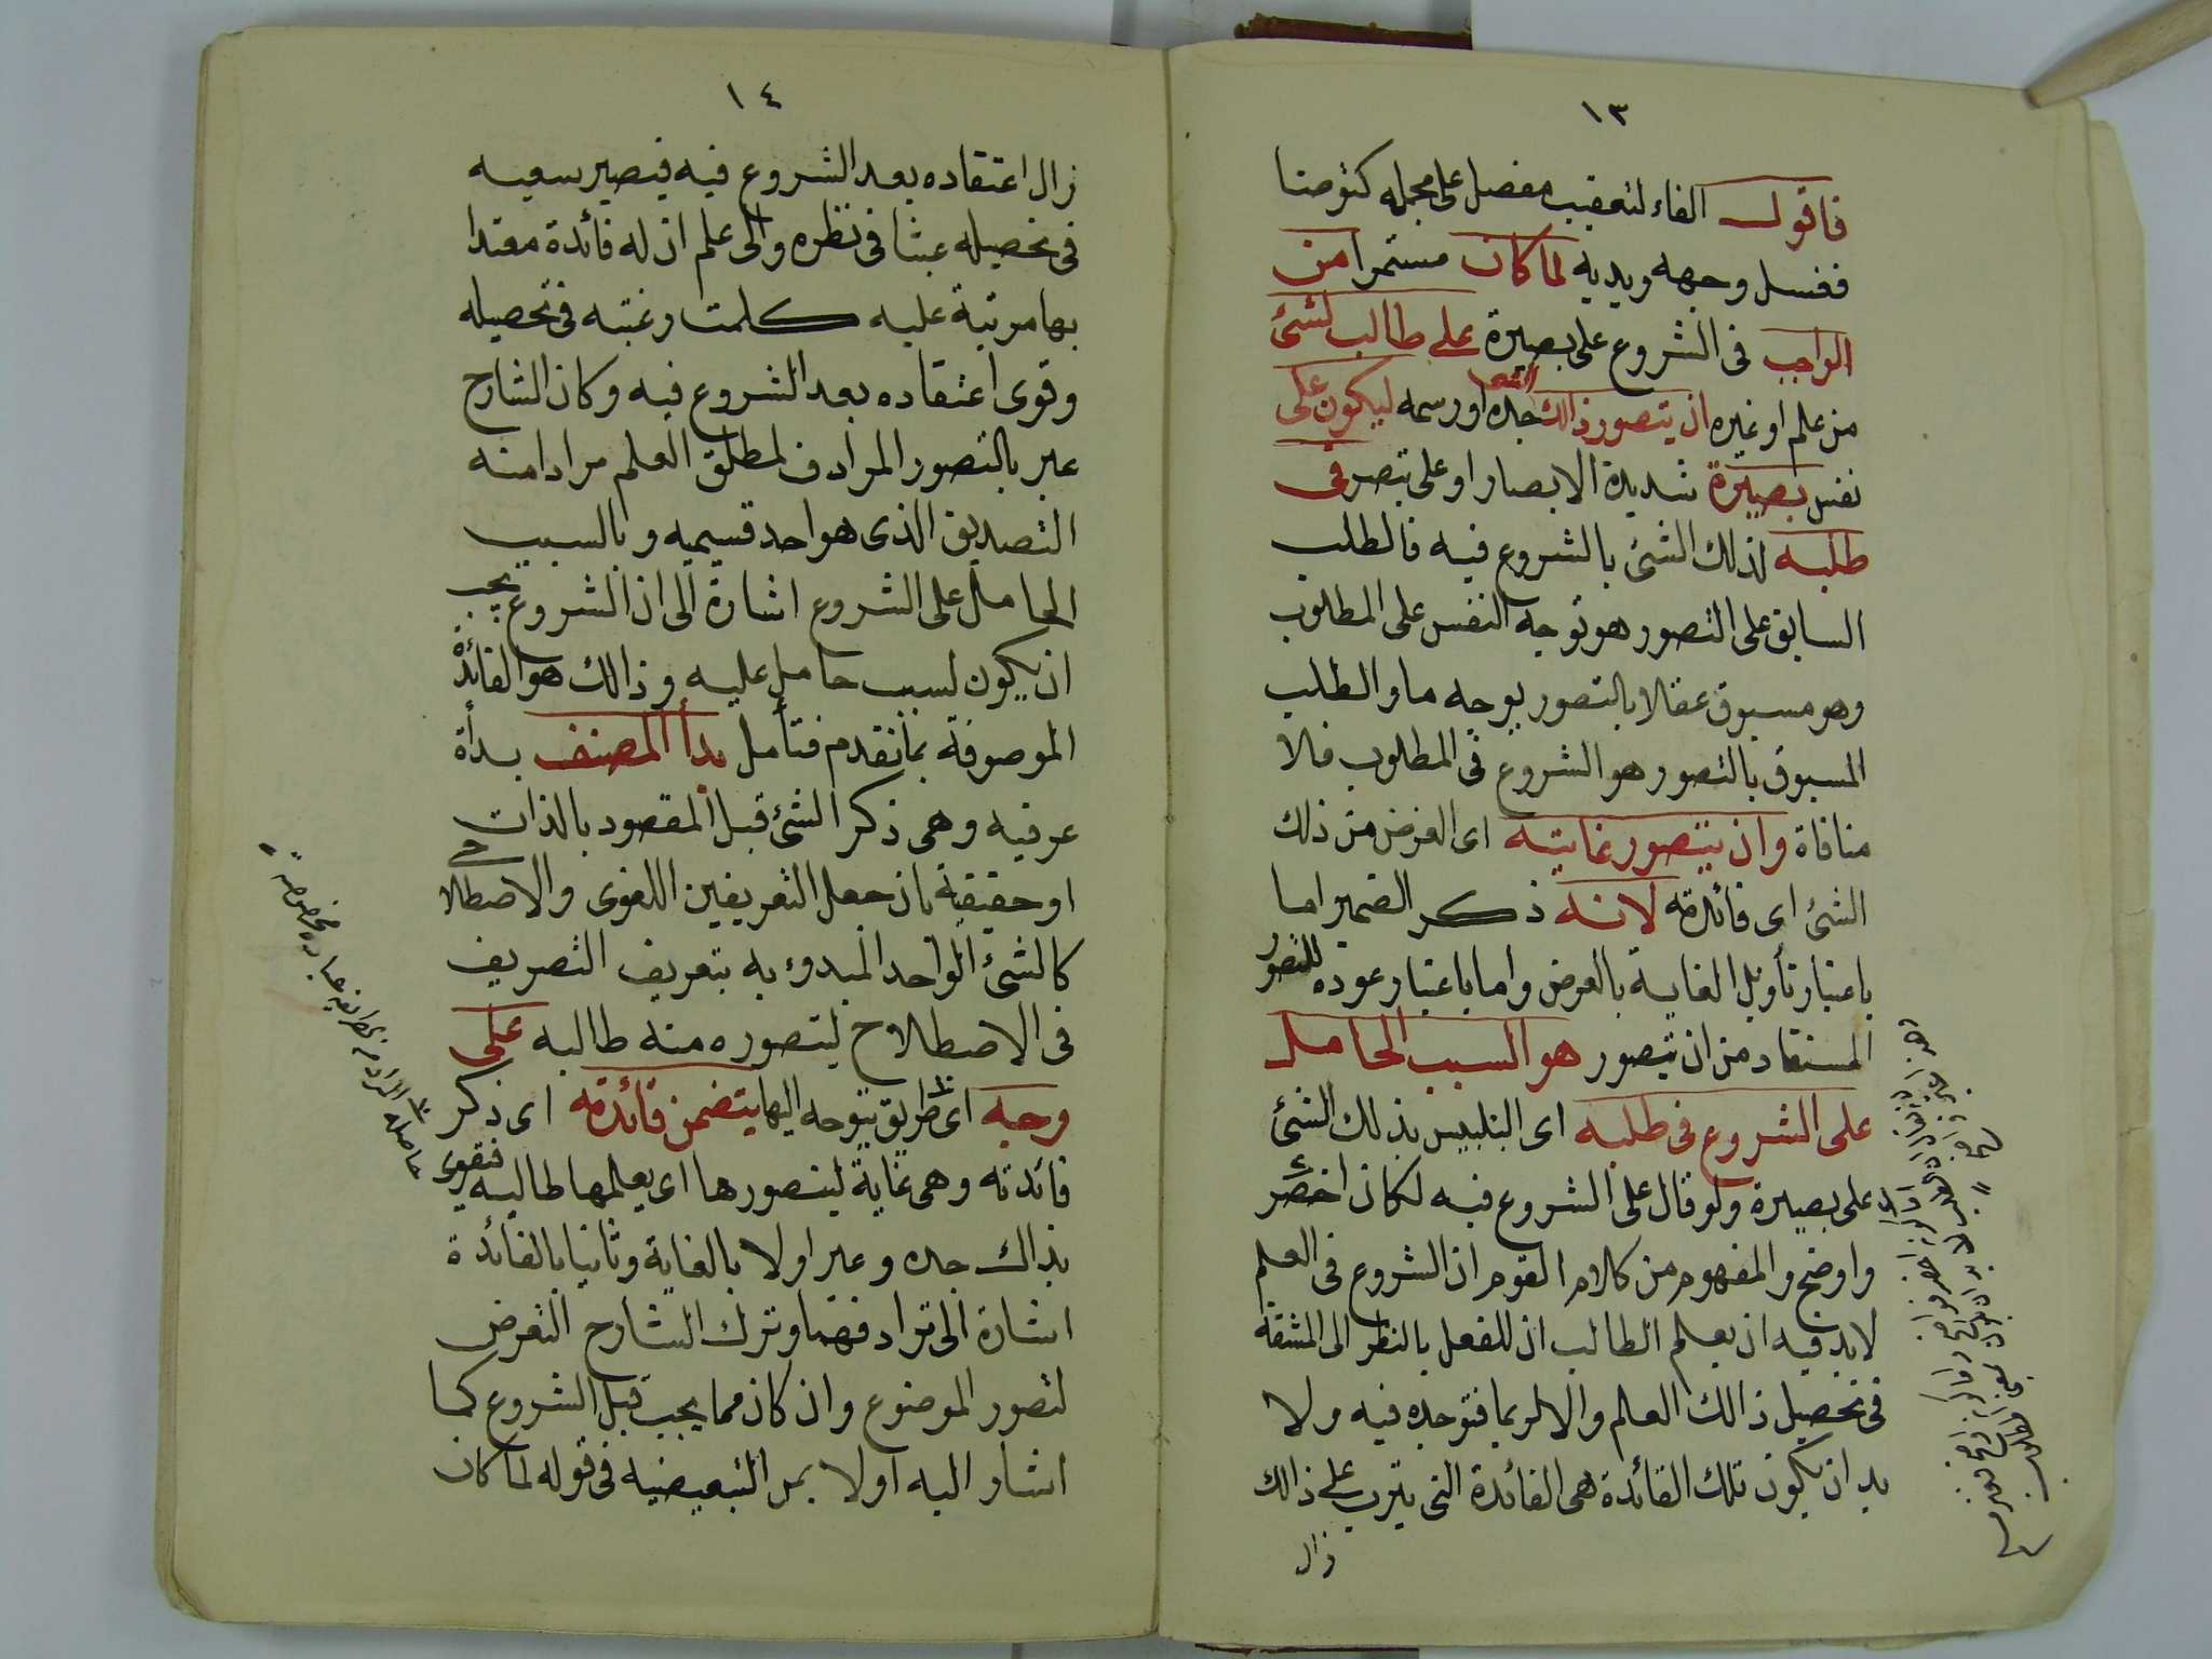 ١٣
فاقول الفاء لتعقيب مفصل على مجمله كتوضأ
فغسل وجهه ويديه لما كان مستمرا من
الواجب فى الشروع على بصيرة على طالب لشئ
من علم او غيره ان يتصور ذالك الشئ بحده او رسمه ليكون على
نفس بصيرة شديدة الابصار او على تبصر فى
طلبه لذلك الشئ بالشروع فيه فالطلب
السابق على التصور هو توجه النفس على المطلوب
وهو مسبوق عقلا بالتصور بوجه ما والطلب
المسبوق بالتصور هو الشروع فى المطلوب فلا
منافاة وان يتصور غايته اى الغرض من ذلك
الشئ اى فائدته لانه ذكر الضمير اما
باعتبار تأويل الغاية بالغرض واما باعتبار عوده للتصور
المستفاد من ان يتصور هو السبب الحامل
على الشروع فى طلبه اى التلبيس بذلك الشئ
على بصيرة ولو قال على الشروع فيه لكان اخصر
واوضح والمفهوم من كلام القوم ان الشروع فى العلم
لا بد فيه ان يعلم الطالب ان للفعل بالنظر الى المشقة
فى تحصيل ذالك العلم والا لربما فتر جده فيه ولا
بد ان يكون تلك الفائدة هى الفائدة التى يترب على ذالك
زال
١٤
زال اعتقاده بعد الشروع فيه فيصير سعيه
فى تحصيله عبثا فى نظره والى علم ان له فائدة معتدا
بها مرتبة عليه كلمت رغبته فى تحصيله
وقوى اعتقاده بعد الشروع فيه وكان الشارح
عبر بالتصور المرادف لمطلق العلم مرادا منه
التصديق الذى هو احد قسيميه وبالسبب
الحامل على الشروع اشارة الى ان الشروع يجب
ان يكون لسبب حامل عليه وذالك هو الفائدة
الموصوفة بما تقدم فتأمل بدأ المصنف بدأة
عرفيه وهى ذكر الشئ قبل المقصود بالذات
او حقيقية بان جعل التعريفين اللغوى والاصطلاحى
كالشئ الواحد المبدوء به بتعريف التصريف
فى الاصطلاح ليتصوره منه طالبه على
وجه اى طريق يتوجه اليها يتضمن فائدته اى ذكر
فائدته وهى غاية ليتصورها اى يعلمها طالبه فتقوى
بذاك جده وعبر اولا بالغاية وثانيا بالفائدة
اشارة الى ترادفهما وترك الشارح التعرض
لتصور الموضوع وان كان مما يجب قبل الشروع كما
اشار اليه اولا بمن التبعيضيه فى قوله لما كان
حاصله المراد